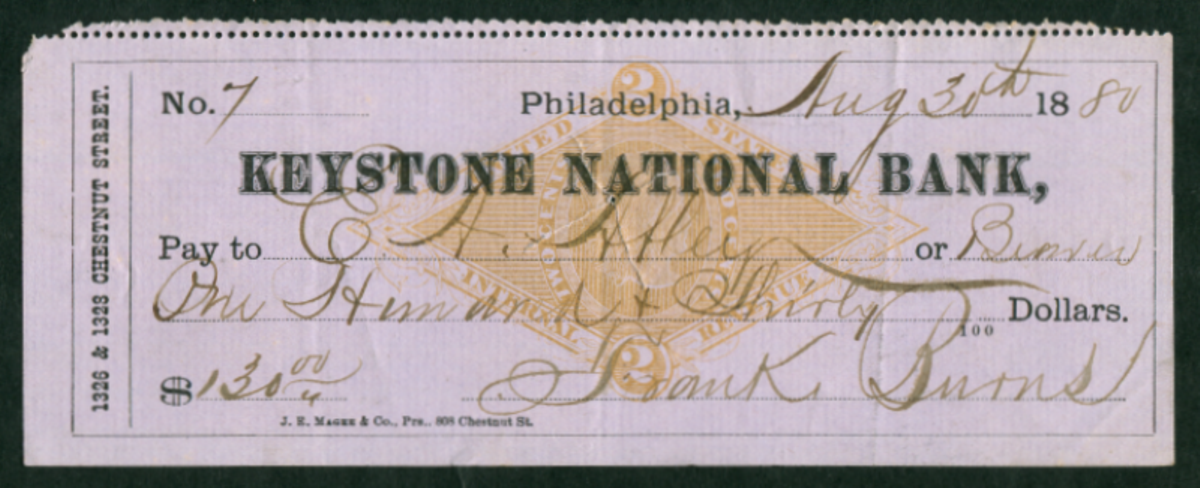 1326 & 1328 CHESTNUT STREET.
No. 7 Philadelphia, Aug 30th 1880
2
UNITED STATES
KEYSTONE NATIONAL BANK,
Pay to E. A. or Bearer
One Hundred & Thirty 100 Dollars.
INTERNAL REVENUE
2
$130 00 Frank Burns
J. E. MAGEE & Co., Prs., 808 Chestnut St.